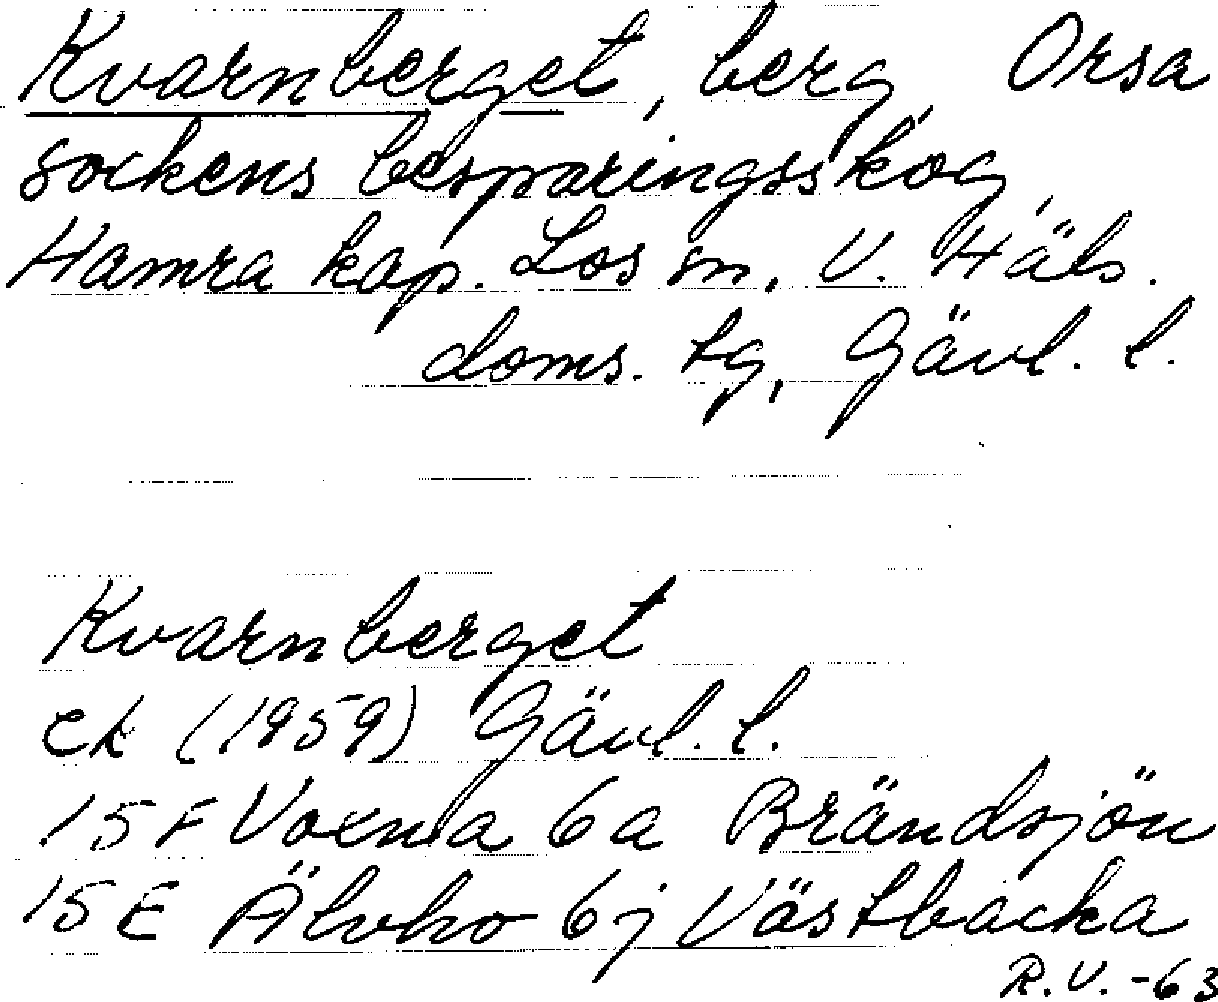 Kvarnberget, berg, Orsa
sockens besparingsskog,
Hamra kap. Los sn, V. Häls.
doms. tg, Gävl. l.
Kvarnberget
ek (1959) Gävl. l.
15 F Voxna 6a Brändsjön
15 E Älvho 6j Västbacka
R.V. -63